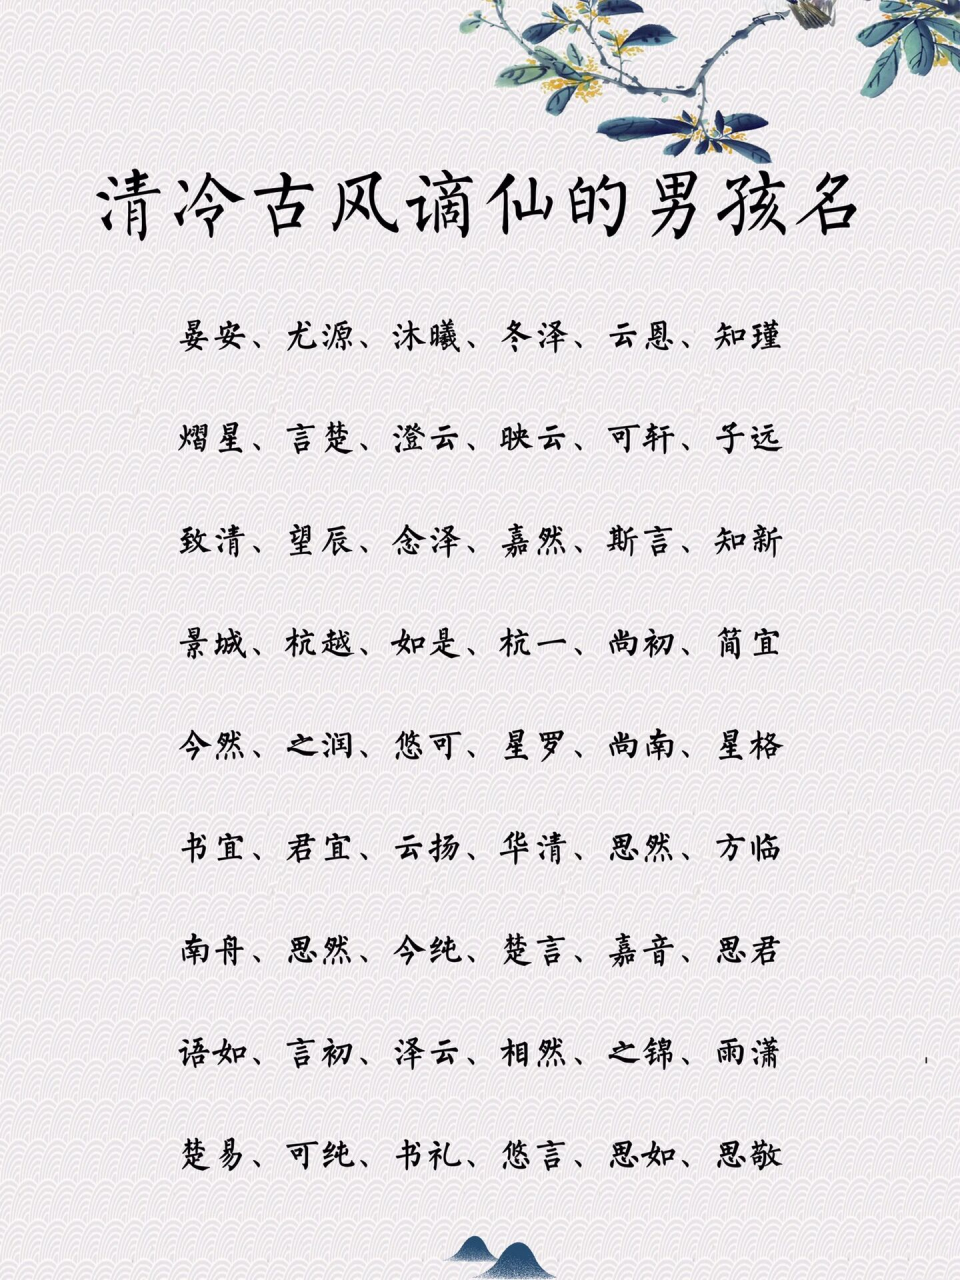 清冷古风谪仙的男孩名
晏安、尤源、沐曦、冬泽、云恩、知瑾
熠星、言楚、澄云、映云、可轩、子远
致清、望辰、念泽、嘉然、斯言、知新
景城、杭越、如是、杭一、尚初、简宜
今然、之润、悠可、星罗、尚南、星格
书宜、君宜、云扬、华清、思然、方临
南舟、思然、今纯、楚言、嘉音、思君
语如、言初、泽云、相然、之锦、雨潇
楚易、可纯、书礼、悠言、思如、思敬